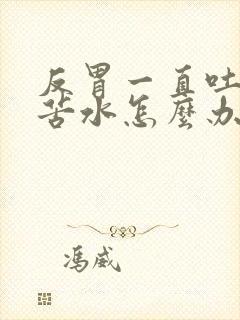 反胃一直吐
苦水怎麼办
馮威